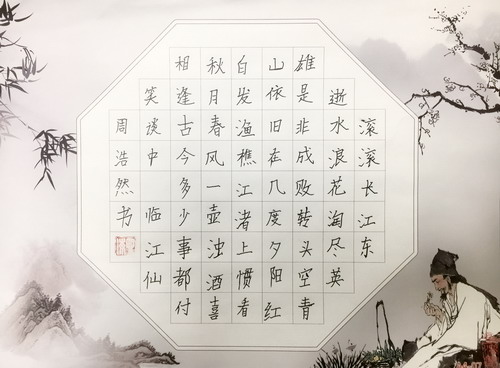 滚滚长江东
逝水浪花淘尽英
雄是非成败转头空青
山依旧在几度夕阳红
白发渔樵江渚上惯看
秋月春风一壶浊酒喜
相逢古今多少事都付
笑谈中 临江仙
周浩然书